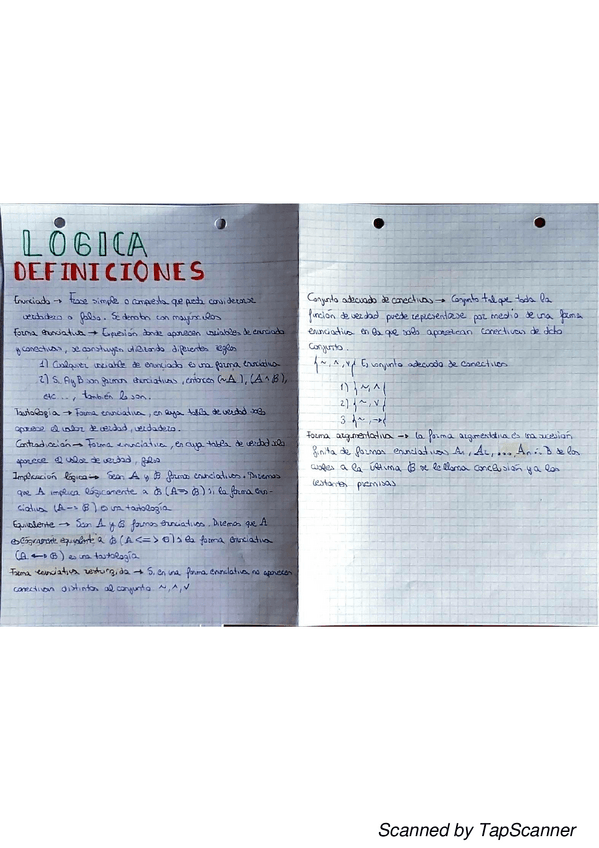 LÓGICA
DEFINICIONES
Enunciado → Frase simple o compuesta que puede considerarse
verdadera o falsa. Se denotan con mayúsculas
Forma enunciativa → Expresión donde aparecen variables de enunciado
y conectivas, se construyen utilizando diferentes reglas
1) Cualquier variable de enunciado es una forma enunciativa
2) Si A y B son formas enunciativas, entonces (~A), (A ^ B),
etc ..., también lo son.
Tautología → Forma enunciativa, en cuya tabla de verdad solo
aparece el valor de verdad, verdadero.
Contradicción → Forma enunciativa, en cuya tabla de verdad solo
aparece el valor de verdad, falso
Implicación lógica → Sean A y B formas enunciativas. Decimos
que A implica lógicamente a B (A => B) si la forma enun-
ciativa (A -> B) es una tautología
Equivalente → Sean A y B formas enunciativas. Dicemos que A
es lógicamente equivalente a B (A <=> B) si la forma enunciativa
(A <-> B) es una tautología
Forma enunciativa restringida → Si en una forma enunciativa no aparecen
conectivas distintas al conjunto ~, ^, v
Conjunto adecuado de conectivas → Conjunto tal que toda la
función de verdad puede representarse por medio de una forma
enunciativa en la que solo aparezcan conectivas de dicho
conjunto.
{~, ^, v} Es conjunto adecuado de conectivas
1) {~, ^}
2) {~, v}
3 {~, →}
Forma argumentativa → la forma argumentativa es una sucesión
finita de formas enunciativas A₁, A₂, ..., Aₙ ∴ B de los
cuales a la última B se le llama conclusión y a los
restantes premisas
Scanned by TapScanner